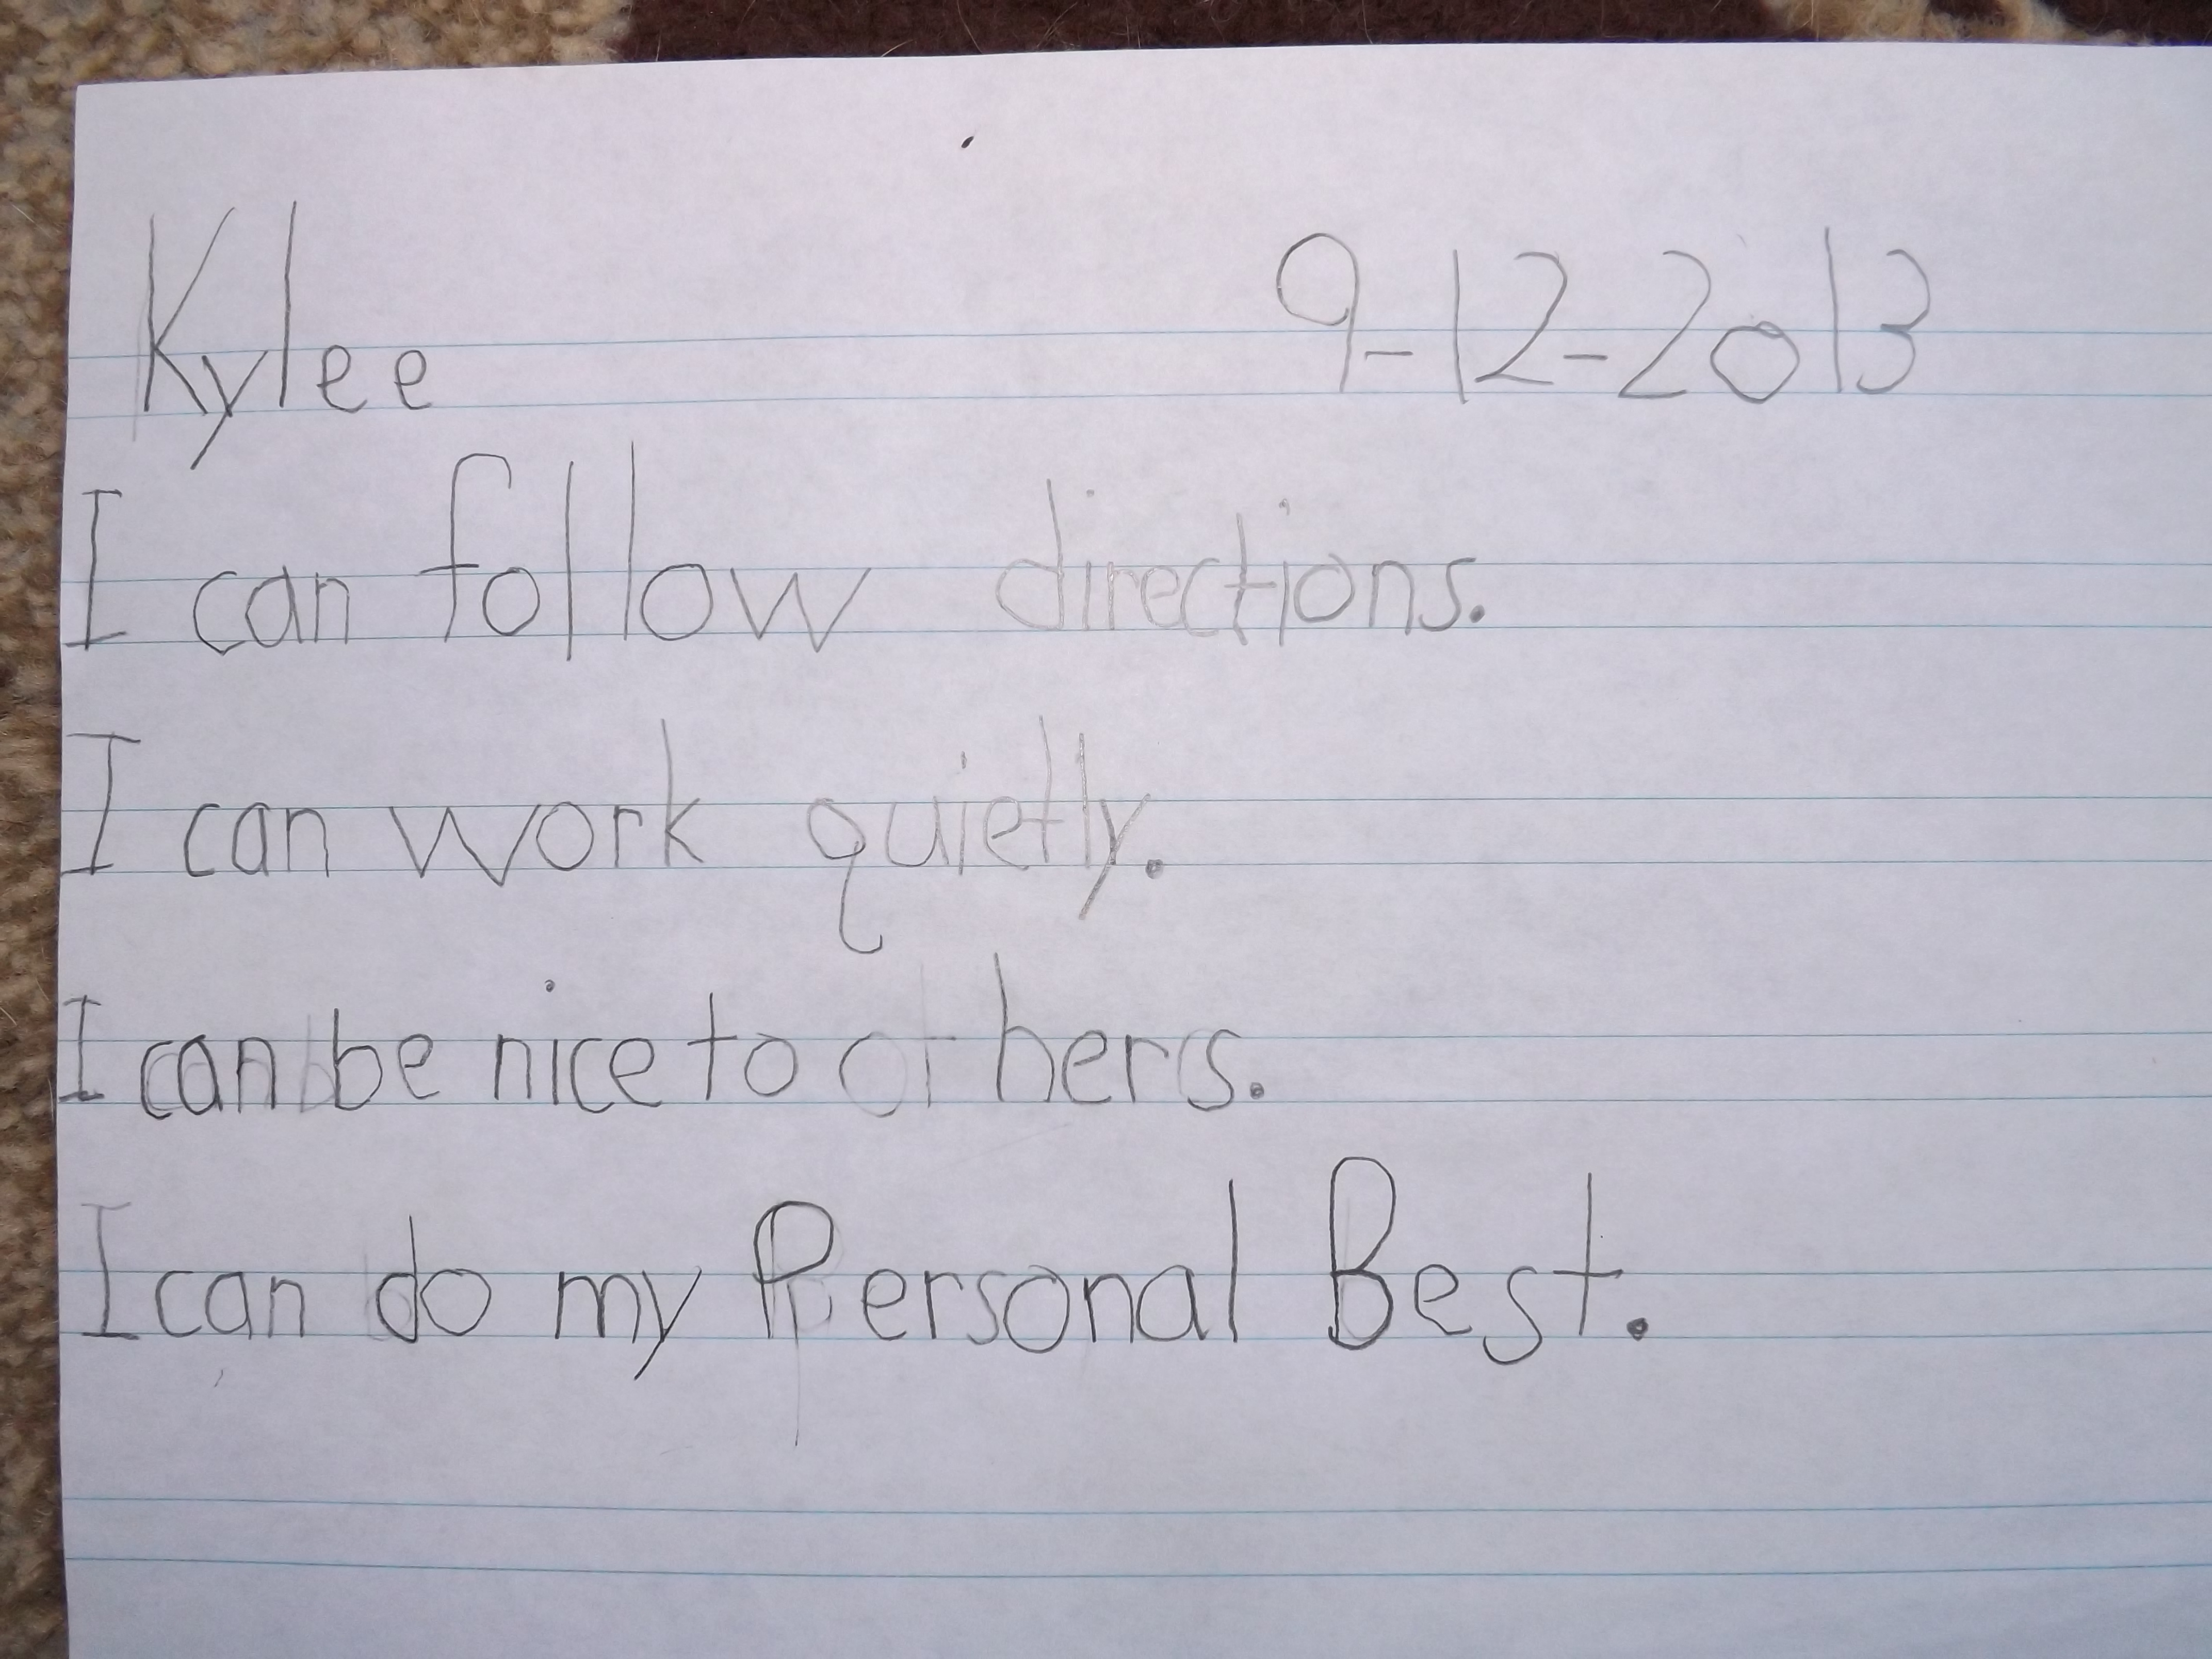 Kylee 9-12-2013
I can follow directions.
I can work quietly.
I can be nice to others.
I can do my Personal Best.